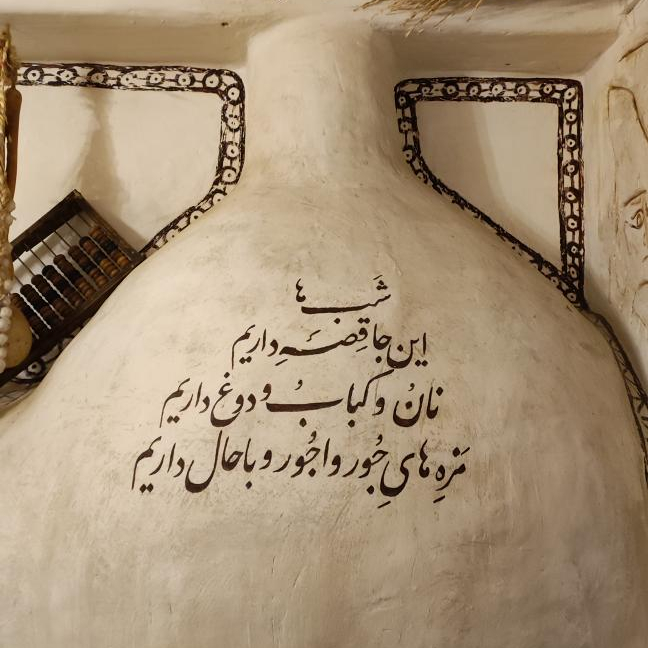 شَب ها
این جا قِصّه داریم
نانُ و کبابُ و دوغ داریم
مَزه هایِ جُور واجُور و باحال داریم